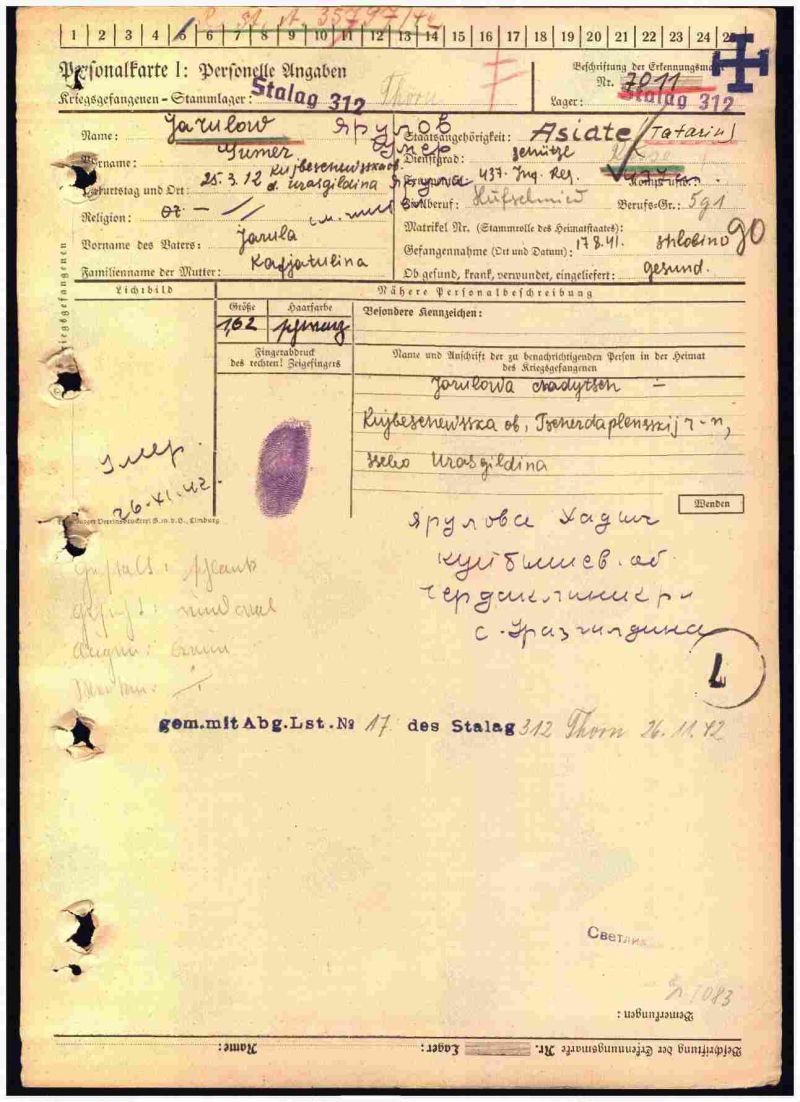 R. St. A. 35797/42
1 2 3 4 5 6 7 8 9 10 11 12 13 14 15 16 17 18 19 20 21 22 23 24 25
Personalkarte I: Personelle Angaben
Beschriftung der Erkennungsmarke
Kriegsgefangenen-Stammlager: Stalag 312 Thorn
Nr. 7011
Lager: Stalag 312
Name: Jarulow Ярулов
Staatsangehörigkeit: Asiate (Tatarin)
Vorname: Sumer
Dienstgrad: schütze
Geburtstag und Ort: 25.3.12 Kujbeschewsska ob. d. Urasgildina
Truppenteil: 437. Ing. Reg. Komp. usw.:
Religion: —
Zivilberuf: Hufschmied Berufs-Gr.: 5g1
Matrikel Nr. (Stammrolle des Heimatstaates):
Vorname des Vaters: Jarula
Gefangennahme (Ort und Datum): 17.8.41. shlobino 90
Familienname der Mutter: Kadjatulina
Ob gesund, krank, verwundet, eingeliefert: gesund.
Lichtbild
Nähere Personalbeschreibung
Größe Haarfarbe
Besondere Kennzeichen:
1,62 schwarz
Fingerabdruck
des rechten! Zeigefingers
Name und Anschrift der zu benachrichtigenden Person in der Heimat
des Kriegsgefangenen
Jarulowa chadytsch —
Kujbeschewsska ob, Tscherdaplensskij r-n,
sselo Urasgildina
Умер.
26.XI.42.
Wenden
Ярулова Хадич
Куйбышев. об
Чердаклиник р н
с. Уразгилдина
Gestalt: schlank
Gesicht: rundoval
Augen: braun
L
gem. mit Abg. Lst. № 17 des Stalag 312 Thorn 26.11.42
Светлик
Bemerkungen:
Beschriftung der Erkennungsmarke Nr. Lager: Name: